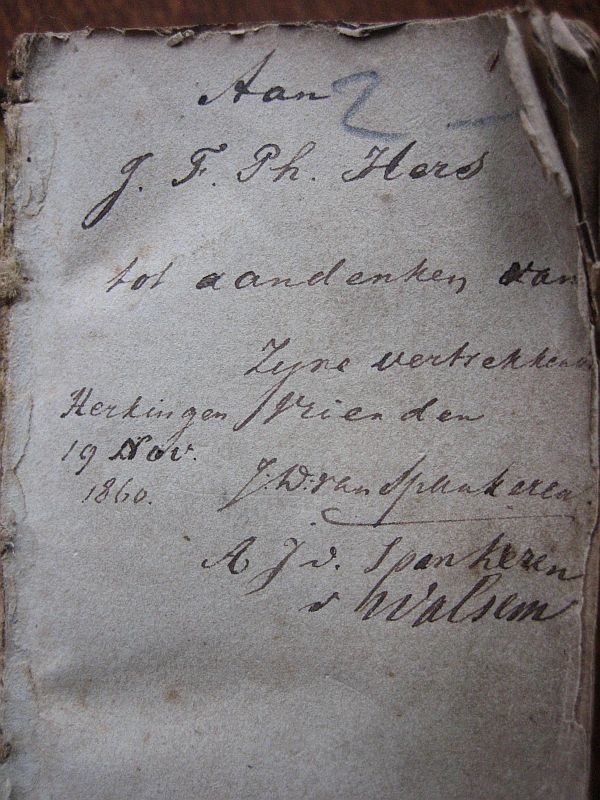 Aan 2 -
J. F. Ph. Hers
tot aandenken van
Zyne vertrekkende
Vrienden
Herkingen
19 Nov.
1860.
J. W. van Spankeren.
A J v. Spankeren
v Walsem